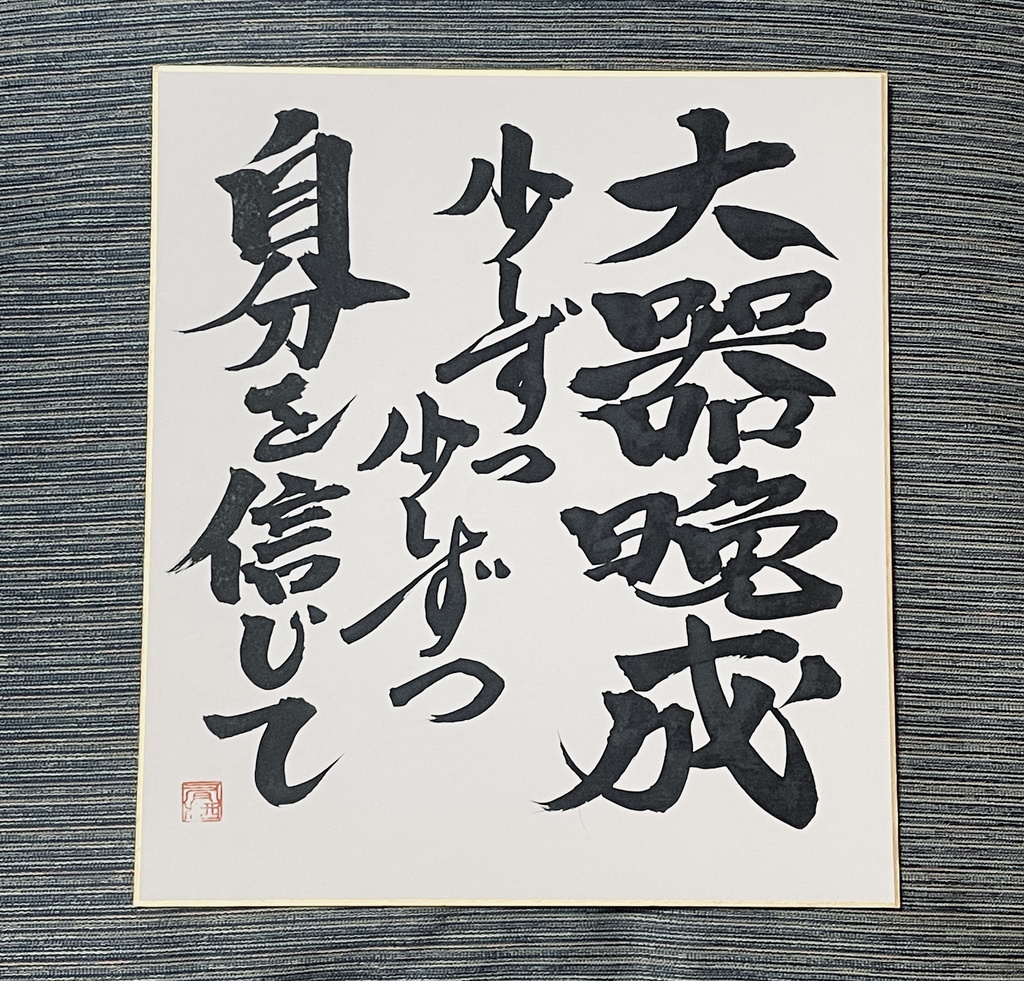 大器晩成
少しずつ
少しずつ
自分を信じて